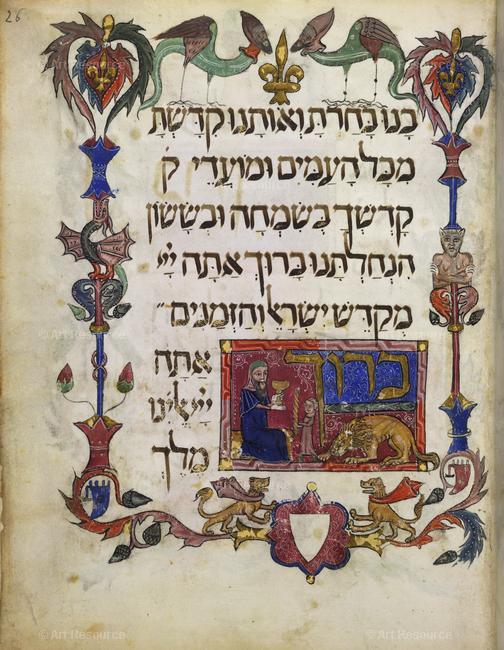 26
בנו בחרת ואותנו קדשת
מכל העמים ומועדי ק
קדשך בשמחה ובששון
הנחלתנו ברוך אתה ייי
מקדש ישראל והזמנים
ברוך
אתה
ייי אלהינו
מלך
© Art Resource
© Art Resource